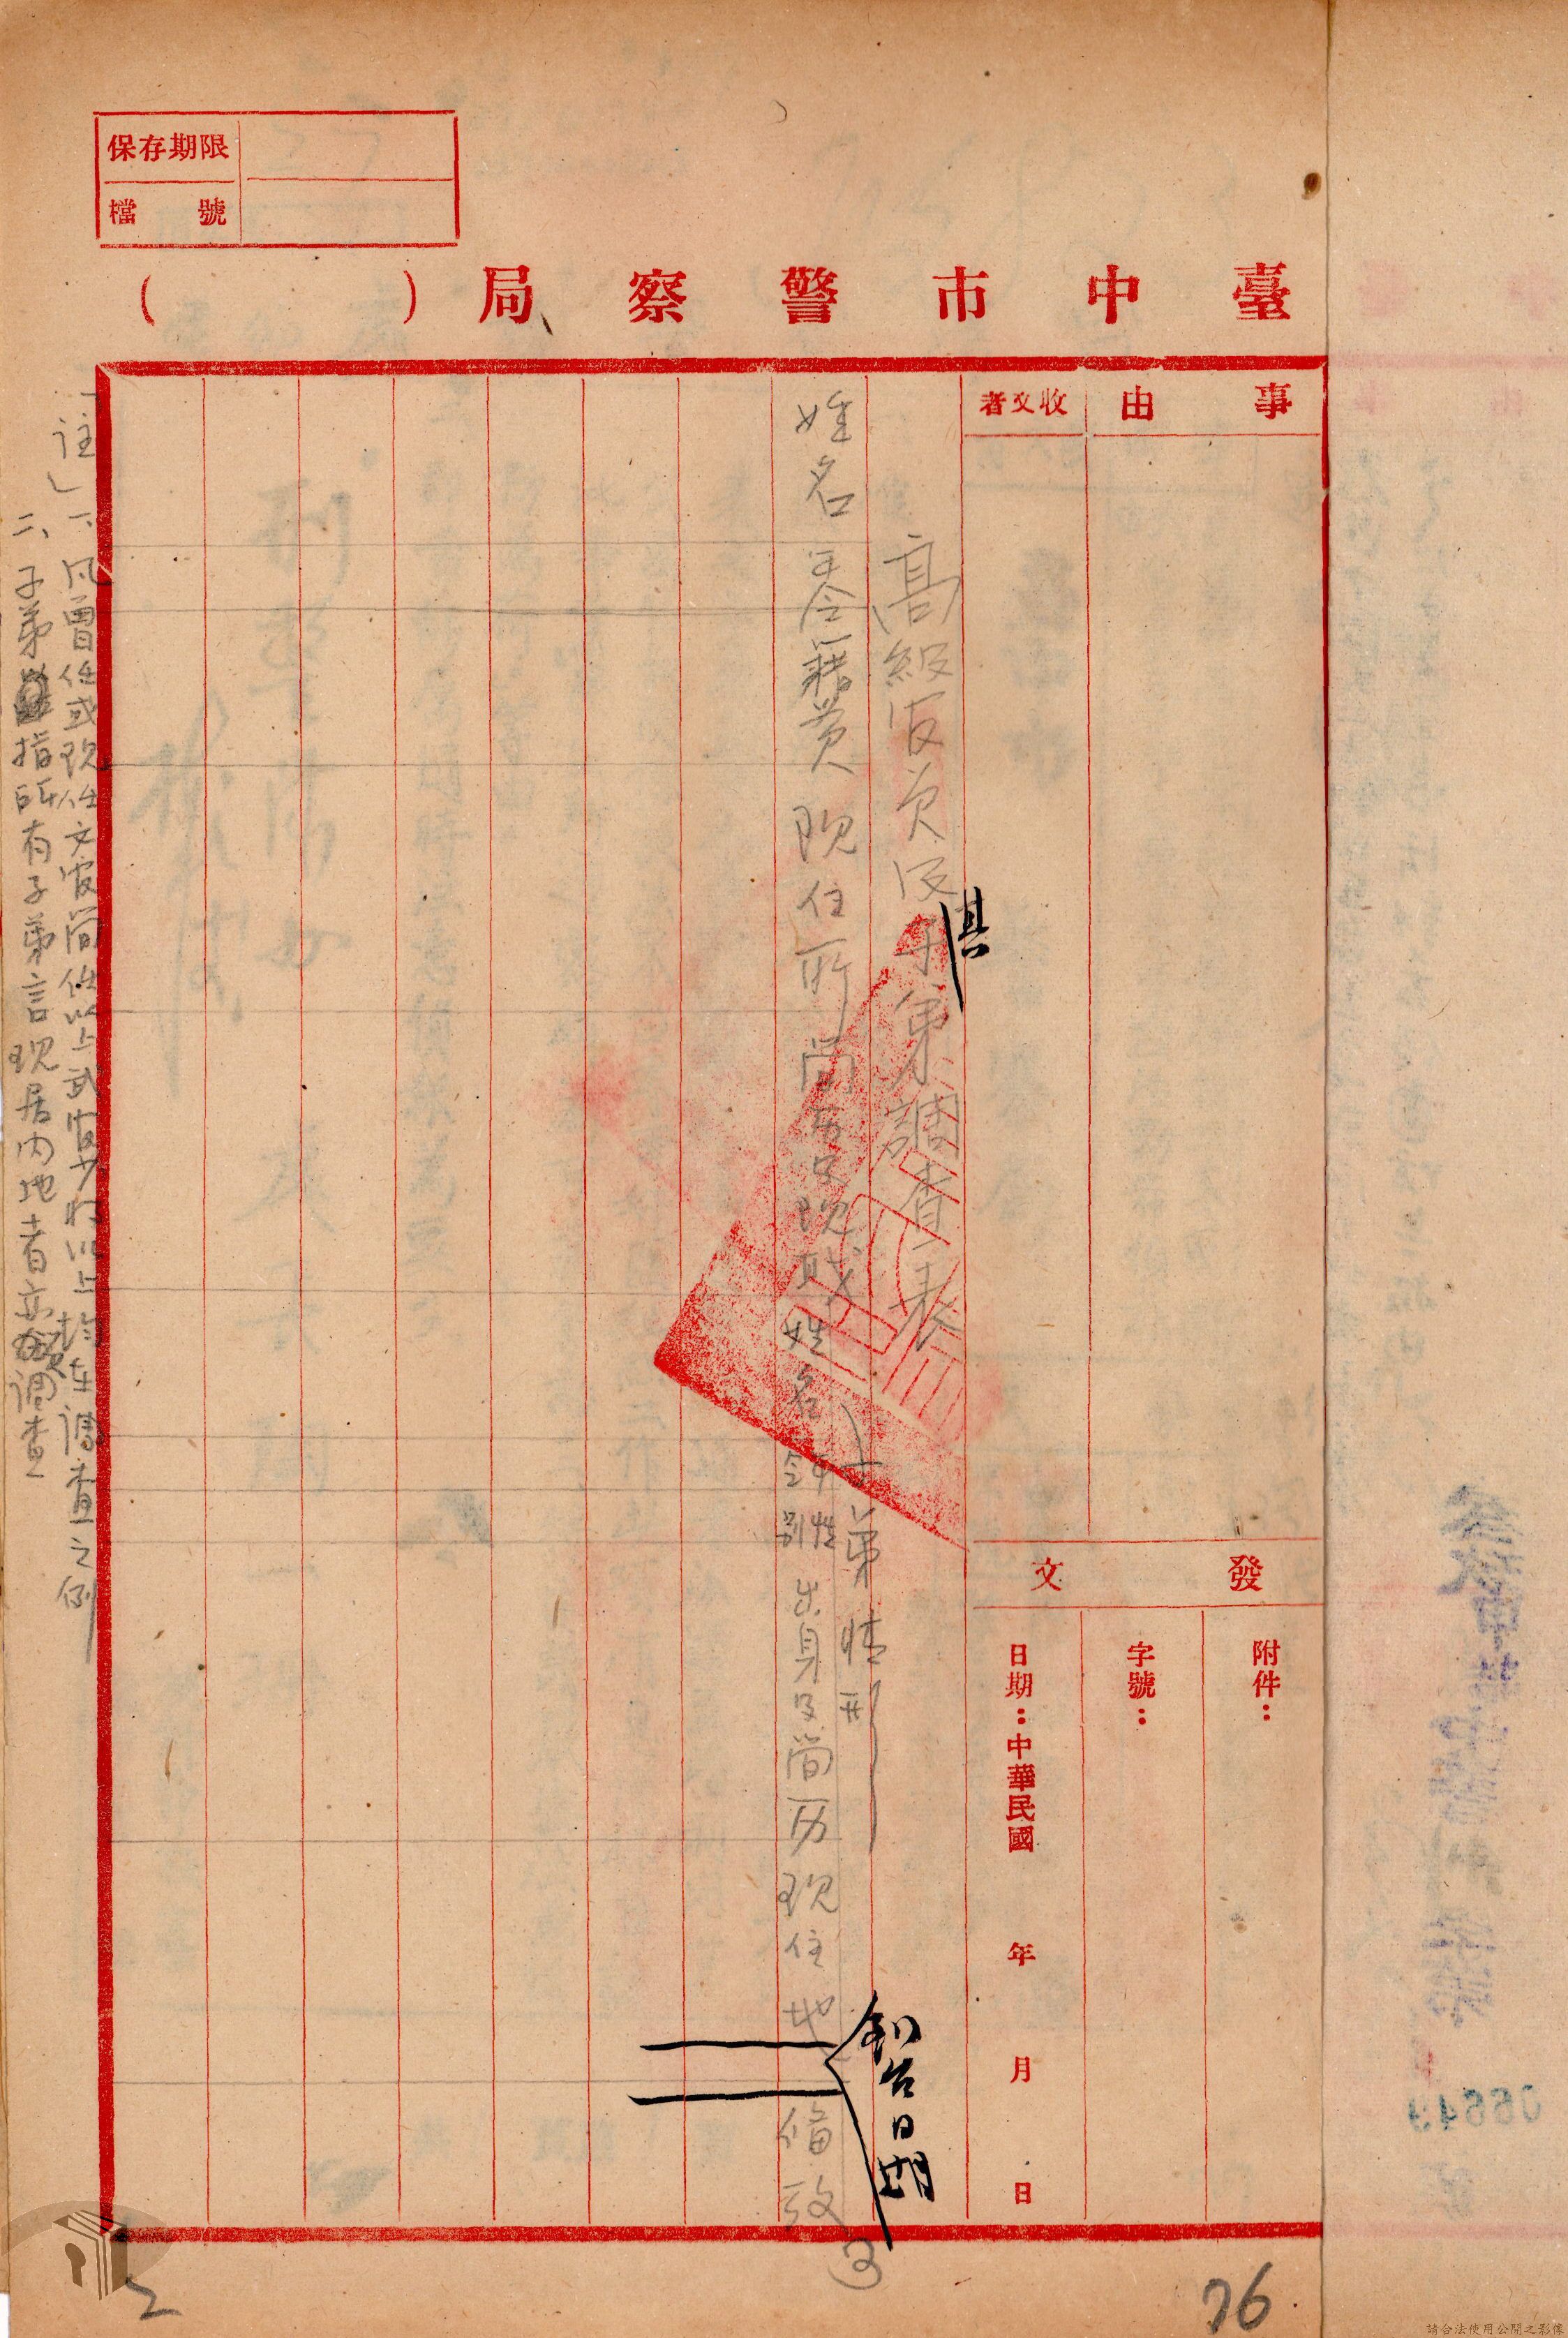 保存期限
檔號
臺中市警察局（　　）
事由
收文者
發文
附件：
字號：
日期：中華民國　年　月　日
高級官員及子弟調查表
具
姓名
年令
籍貫
現住所
簡历及現職
子弟情形
姓名
年令
性別
出身及簡历
現住地
到台日期
備攷
「註」一、凡曾任或現任文官簡任以上武官少将以上均在調查之例
二、子弟指所有子弟言現居内地者亦須調查
3
76
06649
請合法使用公開之影像